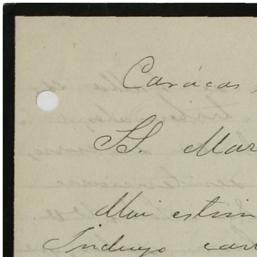 Caracas
H. Mar
Mui estim
Incluyo car